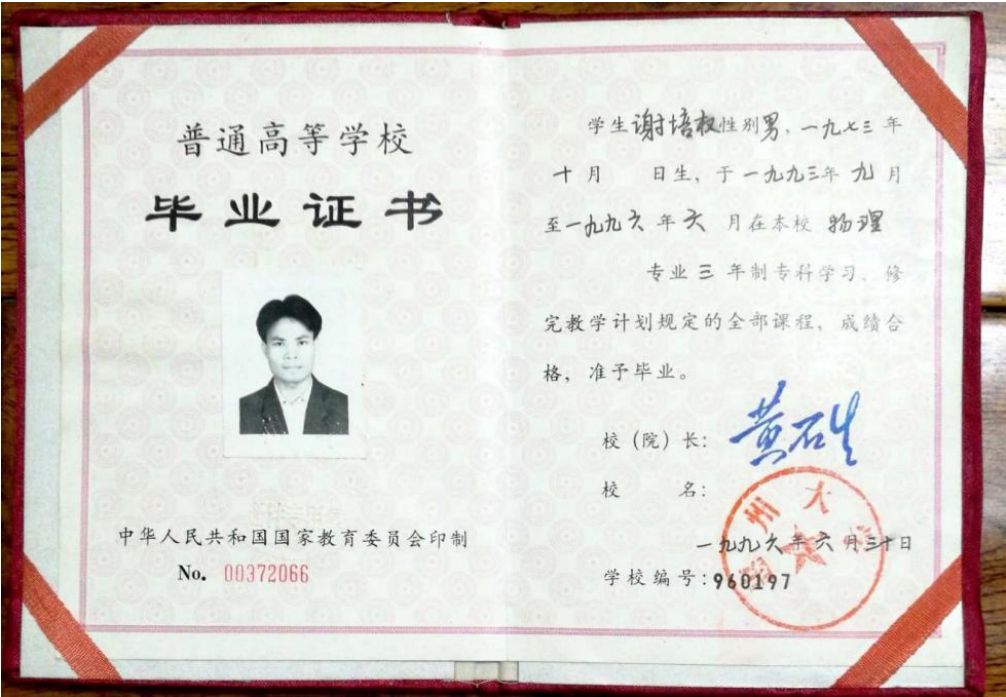 普通高等学校
毕业证书
中华人民共和国国家教育委员会印制
No. 00372066
学生谢培权性别男，一九七三年
十月 日生，于一九九三年九月
至一九九六年六月在本校物理
专业三年制专科学习，修
完教学计划规定的全部课程，成绩合
格，准予毕业。
校（院）长：黄石生
校 名：
州大
一九九六年六月三十日
学校编号：960197